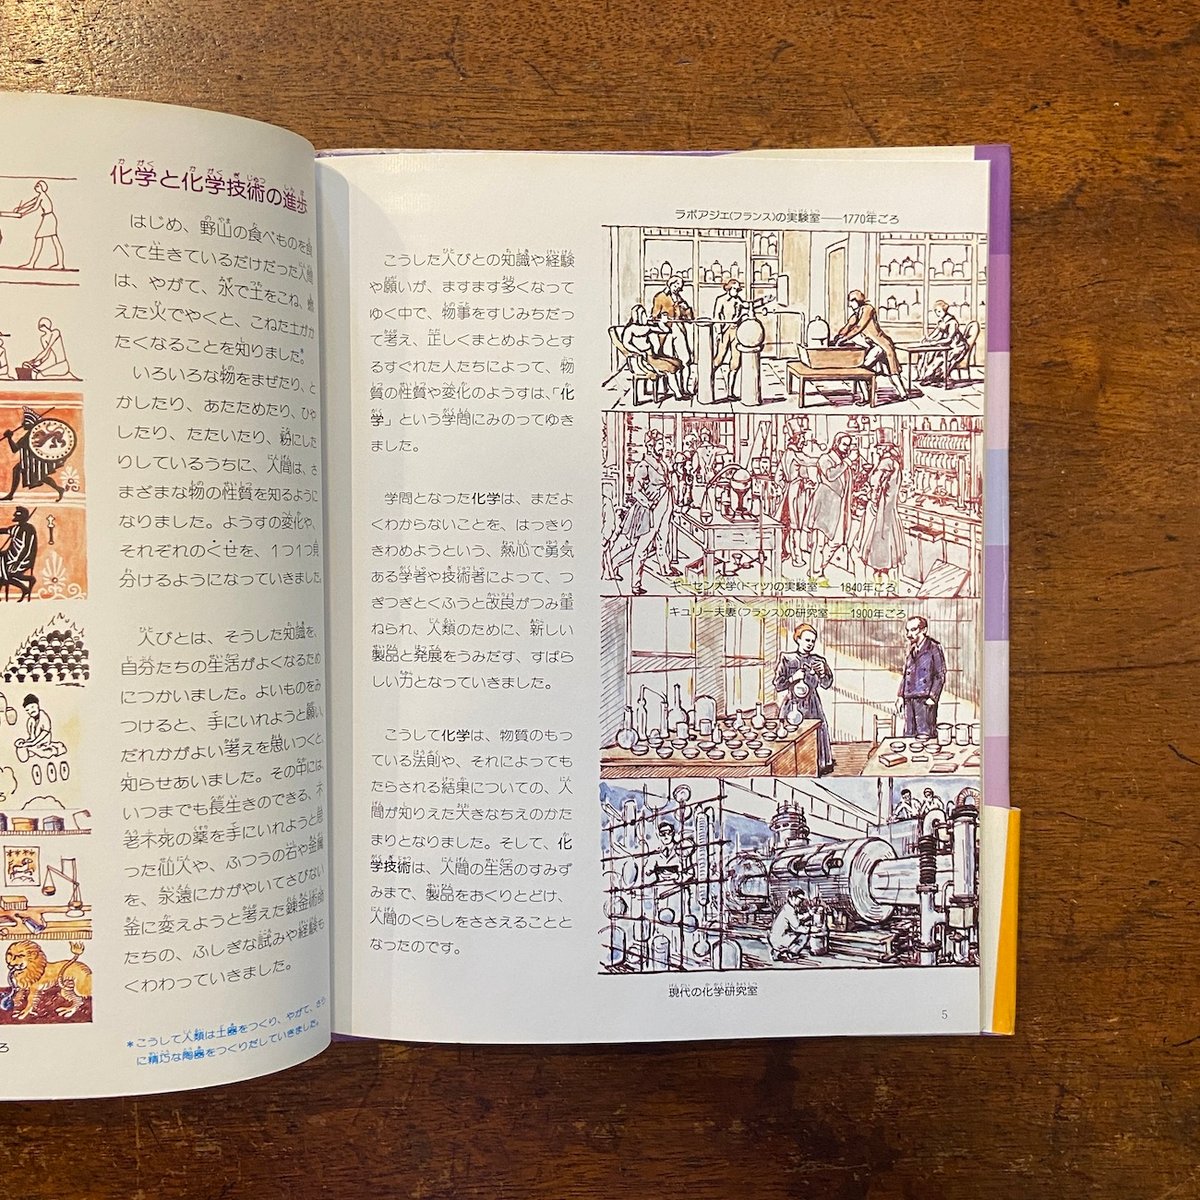 化学と化学技術の進歩
はじめ、野山の食べものを食
べて生きているだけだった人間
は、やがて、水で土をこね、燃
えた火でやくと、こねた土がか
たくなることを知りました*
いろいろな物をまぜたり、と
かしたり、あたためたり、ひや
したり、たたいたり、粉にした
りしているうちに、人間は、さ
まざまな物の性質を知るように
なりました。ようすの変化や、
それぞれのくせを、1つ1つ見
分けるようになっていきました
人びとは、そうした知識を、
自分たちの生活がよくなるため
につかいました。よいものをみ
つけると、手にいれようと願い、
だれかがよい考えを思いつくと、
知らせあいました。その中には、
いつまでも長生きのできる、不
老不死の薬を手にいれようと思
った仙人や、ふつうの石や金属
を、永遠にかがやいてさびない
金に変えようと考えた錬金術師
たちの、ふしぎな試みや経験も
くわわっていきました。
*こうして人類は土器をつくり、やがて、さら
に精巧な陶器をつくりだしていきました。
ろ
こうした人びとの知識や経験
や願いが、ますます多くなって
ゆく中で、物事をすじみちだっ
て考え、正しくまとめようとす
るすぐれた人たちによって、物
質の性質や変化のようすは、「化
学」という学問にみのってゆき
ました。
学問となった化学は、まだよ
くわからないことを、はっきり
きわめようという、熱心で勇気
ある学者や技術者によって、つ
ぎつぎとくふうと改良がつみ重
ねられ、人類のために、新しい
製品と発展をうみだす、すばら
しい力となっていきました。
こうして化学は、物質のもっ
ている法則や、それによっても
たらされる結果についての、人
間が知りえた大きなちえのかた
まりとなりました。そして、化
学技術は、人間の生活のすみず
みまで、製品をおくりとどけ、
人間のくらしをささえることと
なったのです。
ラボアジエ(フランス)の実験室——1770年ごろ
ギーセン大学(ドイツ)の実験室——1840年ごろ
キュリー夫妻(フランス)の研究室——1900年ごろ
現代の化学研究室
5